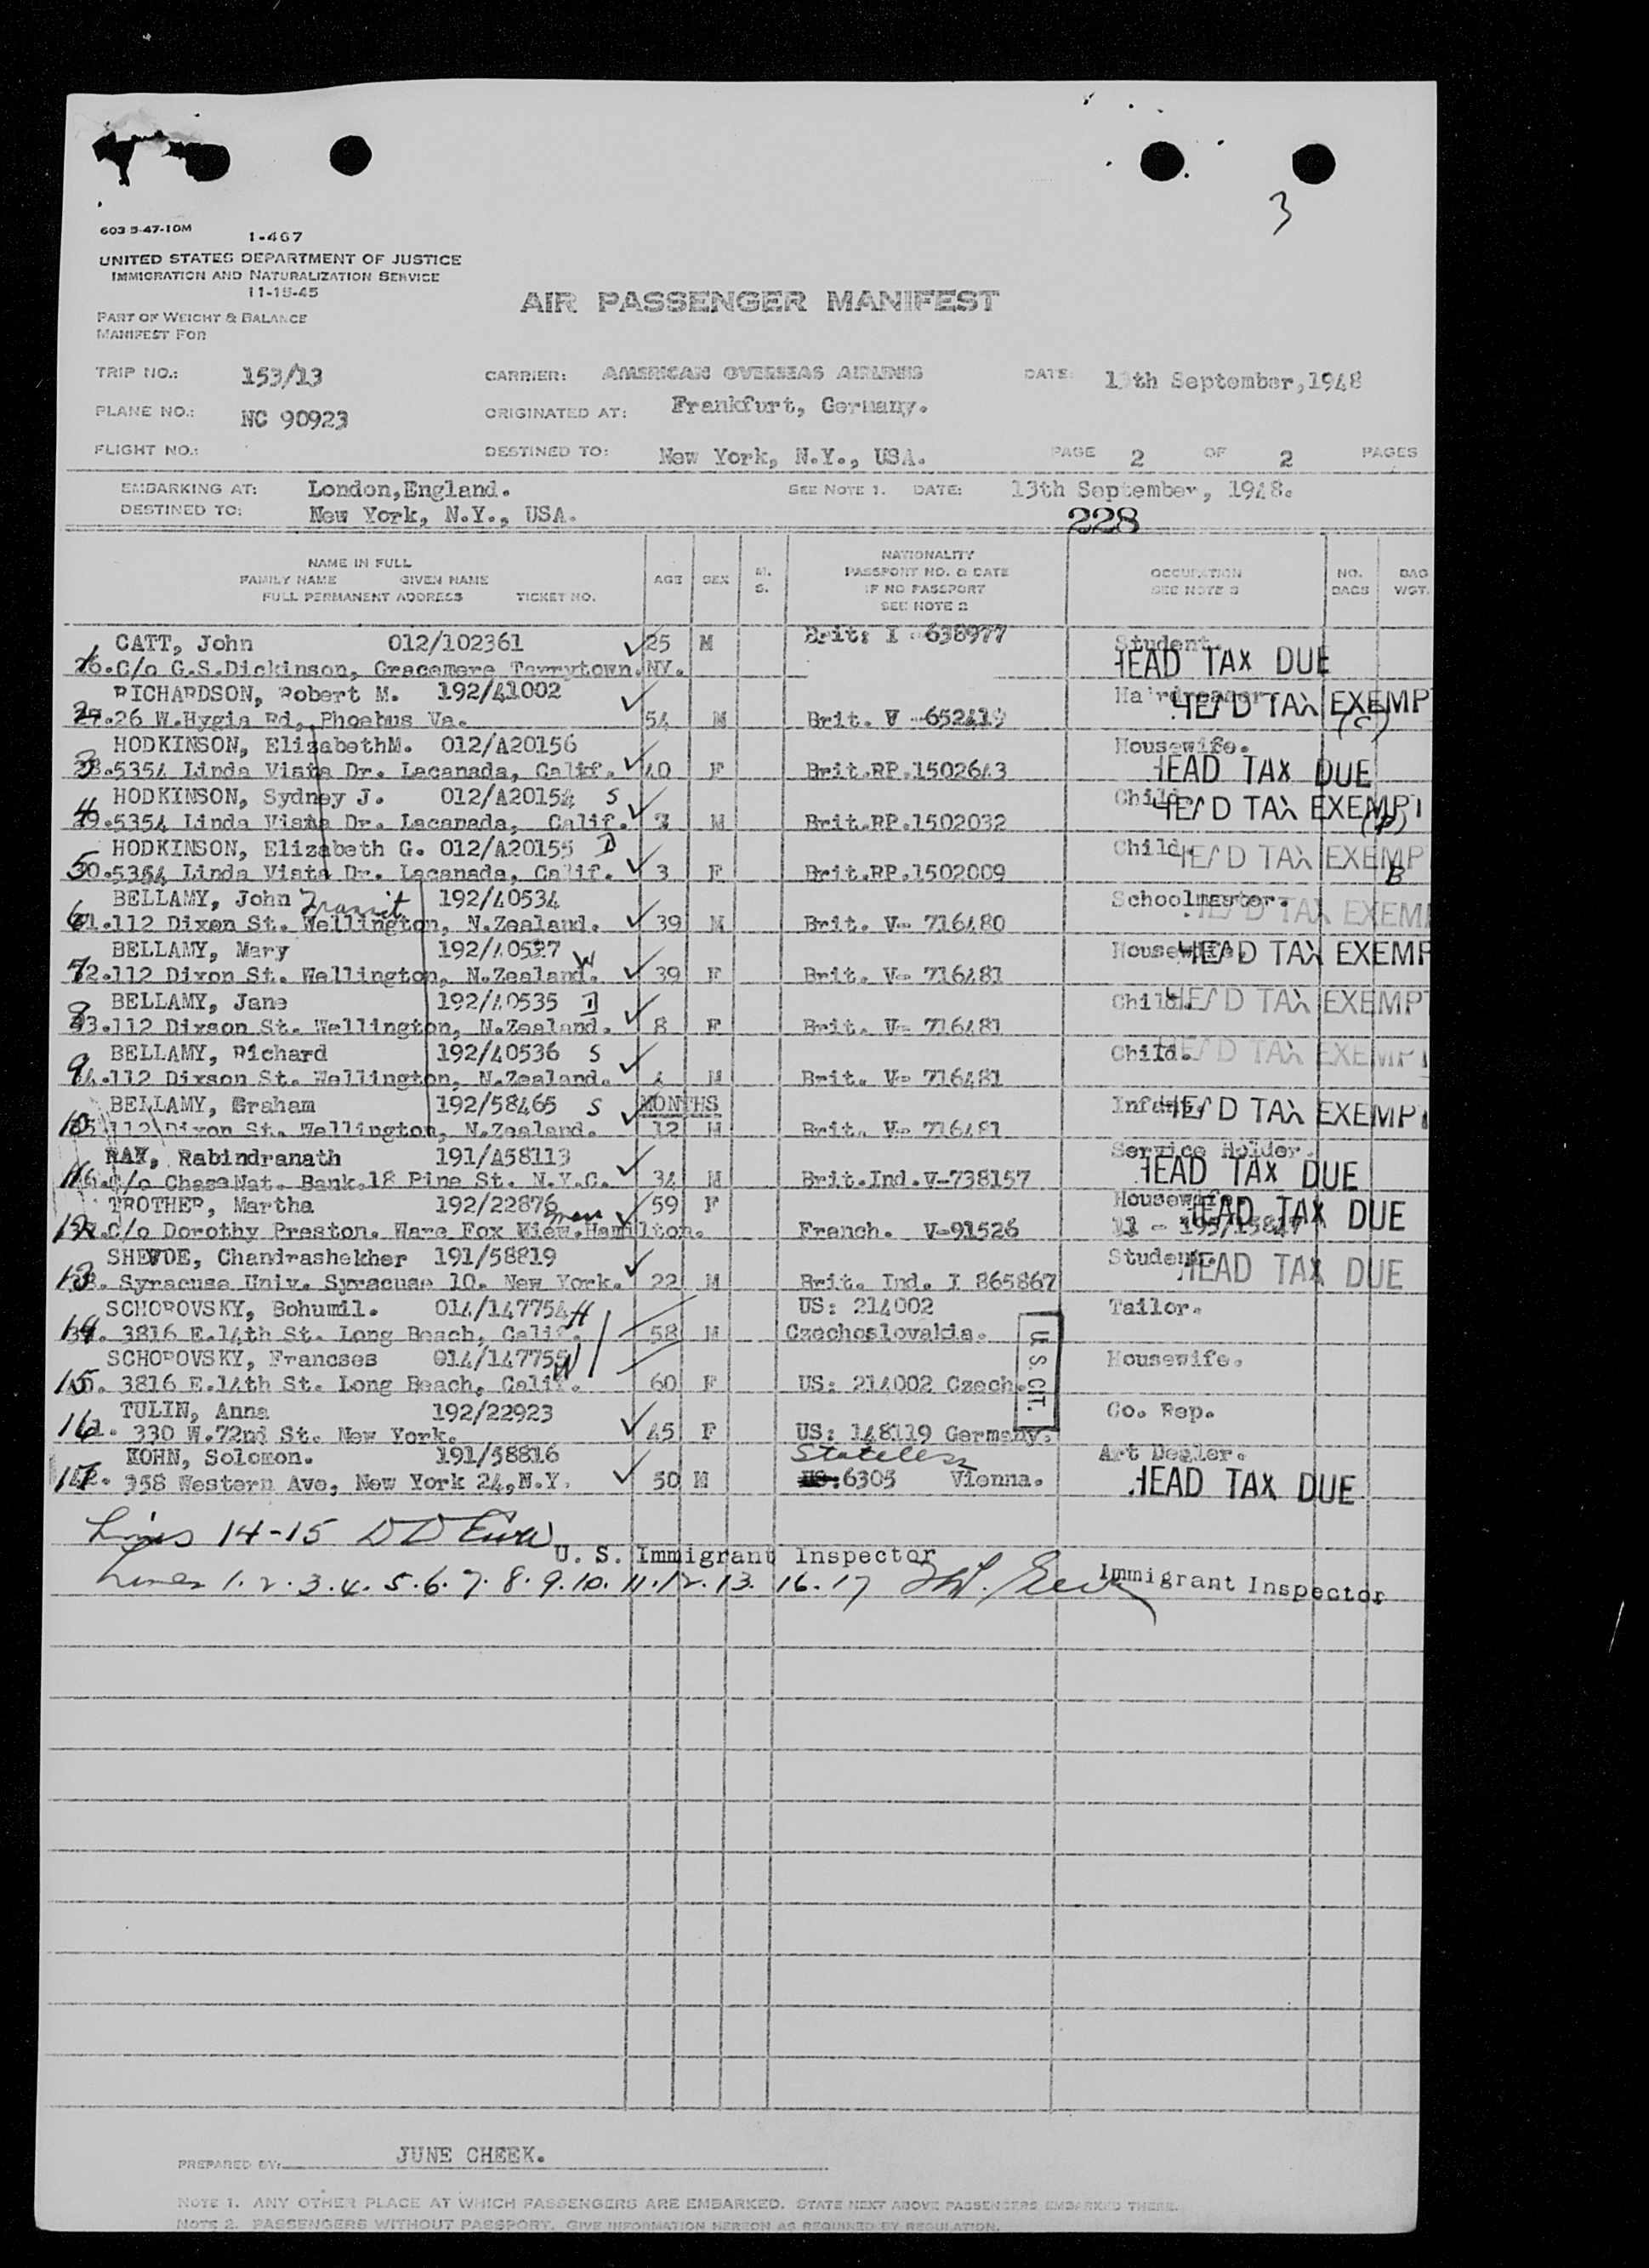 3
603 5-47-10M
1-467
UNITED STATES DEPARTMENT OF JUSTICE
IMMIGRATION AND NATURALIZATION SERVICE
11-15-45
AIR PASSENGER MANIFEST
PART OF WEIGHT & BALANCE
MANIFEST FOR
TRIP NO.: 153/13 CARRIER: AMERICAN OVERSEAS AIRLINES DATE: th September,1948
PLANE NO.: NC 90923 ORIGINATED AT: Frankfurt, Germany.
FLIGHT NO.: DESTINED TO: New York, N.Y., USA. PAGE 2 OF 2 PAGES
EMBARKING AT: London,England. SEE NOTE 1. DATE: 13th September, 1948.
DESTINED TO: New York, N.Y., USA.
228
NAME IN FULL
FAMILY NAME GIVEN NAME
FULL PERMANENT ADDRESS TICKET NO.
AGE SEX M. S.
NATIONALITY
PASSPORT NO. & DATE
IF NO PASSPORT
SEE NOTE 2
OCCUPATION
SEE NOTE 3
NO. BAGS
BAG WGT.
CATT, John 012/102361 25 M Brit: I 638977 Student.
1 26.C/o G.S.Dickinson, Gracemere Tarrytown.NY. HEAD TAX DUE
RICHARDSON, Robert M. 192/41002 Hairdresser HEAD TAX EXEMP
2 27.26 W.Hygia Rd, Phoebus Va. 54 M Brit. V (C)
HODKINSON, ElizabethM. 012/A20156 Housewife.
3 28.5354 Linda Vista Dr. Lacanada, Calif. 40 F Brit.RP.1502643 HEAD TAX DUE
HODKINSON, Sydney J. 012/A20154 S Child. HEAD TAX EXEMPT
4 29.5354 Linda Vista Dr. Lacanada, Calif. 7 M Brit.RP.1502032
HODKINSON, Elizabeth G. 012/A20155 D Child. HEAD TAX EXEMP
5 30.5354 Linda Vista Dr. Lacanada, Calif. 3 F Brit.RP.1502009 B
BELLAMY, John Transit 192/40534 Schoolmaster. HEAD TAX EXEM
6 31.112 Dixon St. Wellington, N.Zealand. 39 M Brit. V- 716480
BELLAMY, Mary 192/40527 W Housewife. HEAD TAX EXEMP
7 32.112 Dixon St. Wellington, N.Zealand. 39 F Brit. V- 716481
BELLAMY, Jane 192/40535 D Child. HEAD TAX EXEMPT
8 33.112 Dixson St. Wellington, N.Zealand. 8 F Brit. V- 716481
BELLAMY, Richard 192/40536 S Child. HEAD TAX EXEMPT
9 34.112 Dixson St. Wellington, N.Zealand. 4 M Brit. V- 716481
BELLAMY, Graham 192/58465 S MONTHS Infant. HEAD TAX EXEMPT
10 35.112 Dixon St. Wellington, N.Zealand. 12 M Brit. V- 716481
RAY, Rabindranath 191/A58113 Service Holder.
11 36.C/o Chase Nat. Bank.18 Pine St. N.Y.C. 34 M Brit.Ind.V-738157 HEAD TAX DUE
TROTHER, Martha 192/22876 59 F Housewife HEAD TAX DUE
12 37.C/o Dorothy Preston. Ware Fox View.Hamilton. French. V-91526
SHEVDE, Chandrashekher 191/58819 Student. HEAD TAX DUE
13 38. Syracuse Univ. Syracuse 10. New York. 22 M Brit. Ind. I 865867
SCHOROVSKY, Bohumil. 014/147754 H US: 214002 Tailor.
14 39. 3816 E.14th St. Long Beach, Calif. 58 M Czechoslovakia.
SCHOROVSKY, Francses 014/147755 W Housewife.
15 40. 3816 E.14th St. Long Beach, Calif. 60 F US: 214002 Czech.
U. S. CIT.
TULIN, Anna 192/22923 Co. Rep.
16 41. 330 W.72nd St. New York. 45 F US: 148119 Germany.
KOHN, Solomon. 191/58816 Stateless Art Dealer.
17 42. 358 Western Ave, New York 24,N.Y. 50 M 6305 Vienna. HEAD TAX DUE
Lines 14-15
U. S. Immigrant Inspector
Lines 1. 2. 3. 4. 5. 6. 7. 8. 9. 10. 11. 12. 13. 16. 17 Immigrant Inspector
PREPARED BY: JUNE CHEEK.
NOTE 1. ANY OTHER PLACE AT WHICH PASSENGERS ARE EMBARKED. STATE NEXT ABOVE PASSENGERS EMBARKED THERE.
NOTE 2. PASSENGERS WITHOUT PASSPORT. GIVE INFORMATION HEREON AS REQUIRED BY REGULATION.